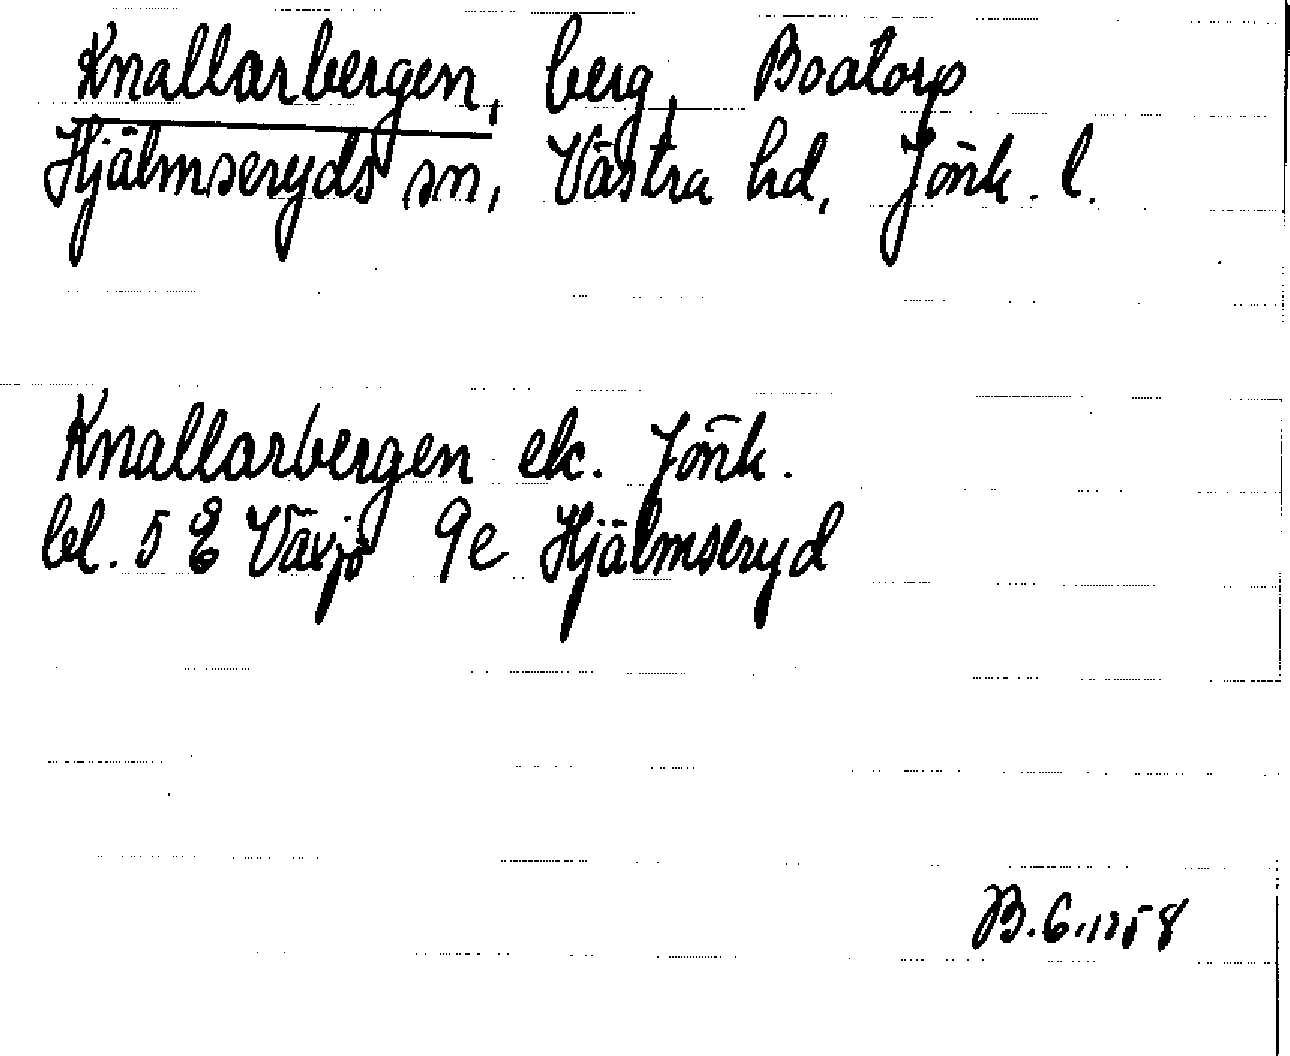 Knallarbergen, berg, Boatorp
Hjälmseryds sn, Västra hd, Jönk. l.
Knallarbergen ek. Jönk.
bl. 5 E Växjö 9e Hjälmseryd
B.G. 1958